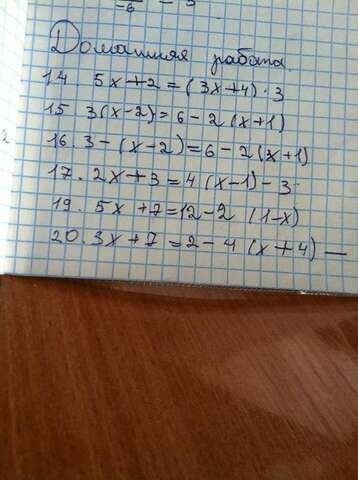 -6
Домашняя работа.
14. 5x+2=(3x+4)·3
15 3(x-2)=6-2(x+1)
16. 3-(x-2)=6-2(x+1)
17. 2x+3=4(x-1)-3
19. 5x+7=12-2 (1-x)
20. 3x+7=2-4(x+4)—